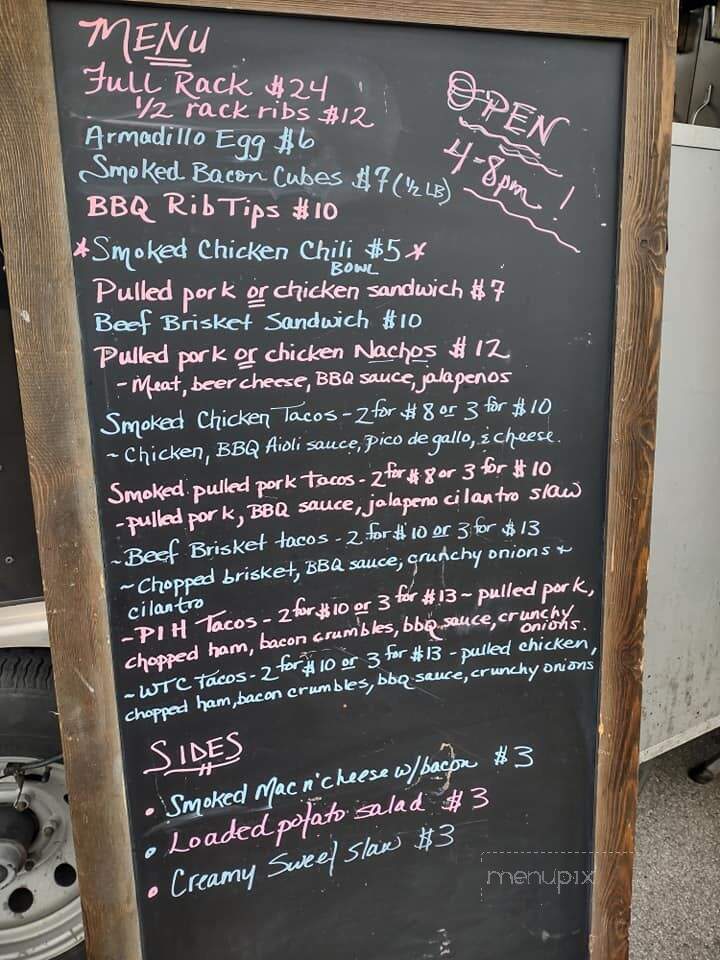 MENU
Full Rack $24
1/2 rack ribs $12
OPEN
4-8pm!
Armadillo Egg $6
Smoked Bacon Cubes $7 (1/2 LB)
BBQ Rib Tips $10
*Smoked Chicken Chili $5*
BOWL
Pulled pork or chicken sandwich $7
Beef Brisket Sandwich $10
Pulled pork or chicken Nachos $12
- Meat, beer cheese, BBQ sauce, jalapenos
Smoked Chicken Tacos - 2 for $8 or 3 for $10
~ Chicken, BBQ Aioli sauce, pico de gallo, & cheese.
Smoked pulled pork tacos - 2 for $8 or 3 for $10
- pulled pork, BBQ sauce, jalapeno cilantro slaw
~ Beef Brisket tacos - 2 for $10 or 3 for $13
~ Chopped brisket, BBQ sauce, crunchy onions +
cilantro
~ PIH Tacos - 2 for $10 or 3 for $13 ~ pulled pork,
chopped ham, bacon crumbles, bbq sauce, crunchy
onions.
~ WTC Tacos - 2 for $10 or 3 for $13 - pulled chicken,
chopped ham, bacon crumbles, bbq sauce, crunchy onions
SIDES
• Smoked Mac n' cheese w/bacon $3
• Loaded potato salad $3
• Creamy Sweet Slaw $3
menupix